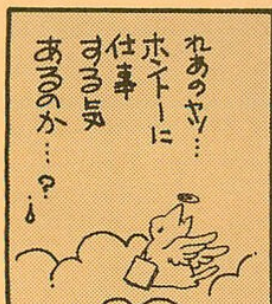 れあのヤツ…
ホントーに
仕事
する気
あるのか…?